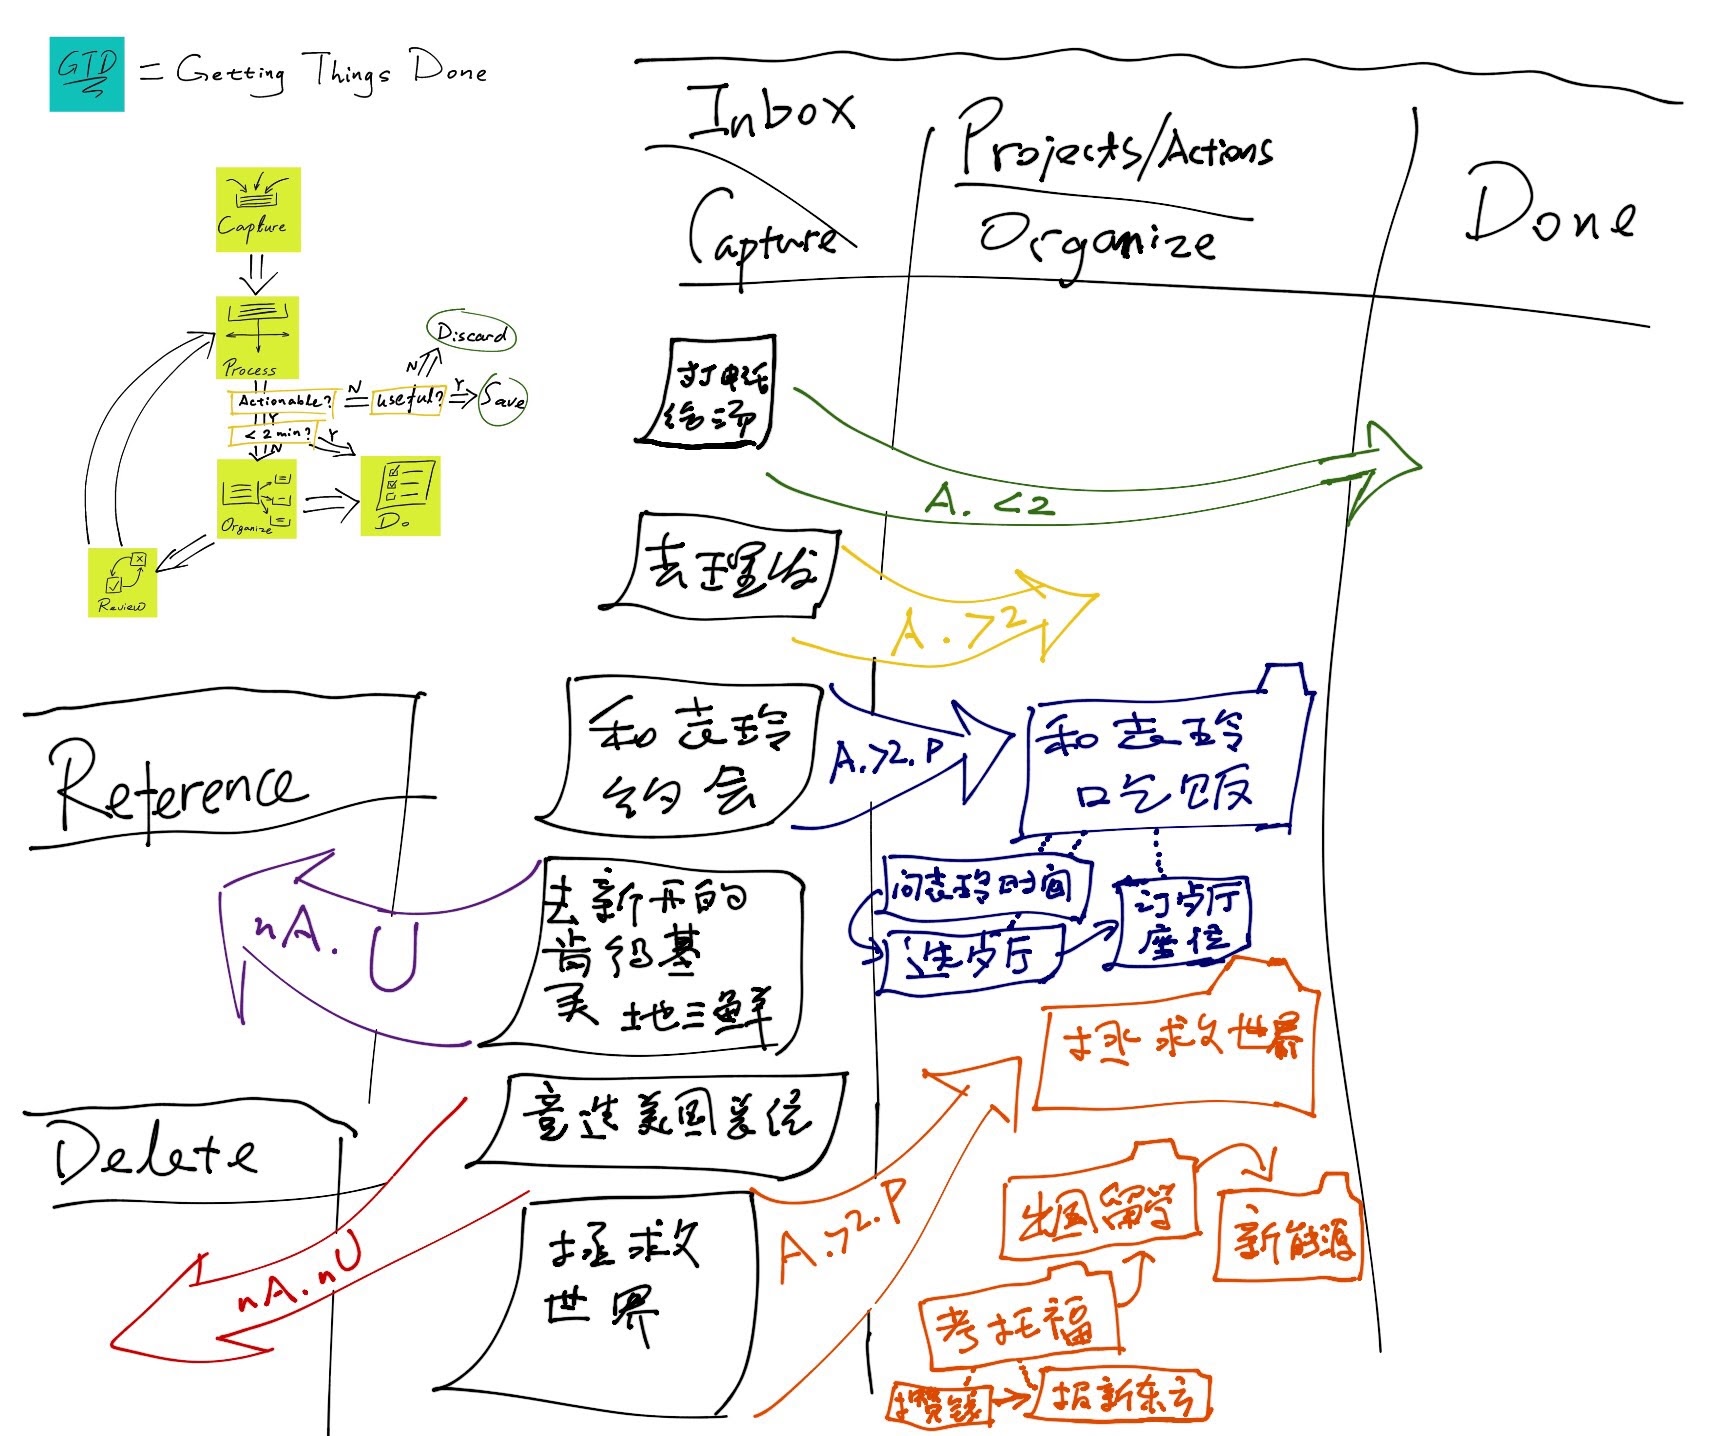 GTD = Getting Things Done
Capture
Process
Actionable?
N
useful?
N
Discard
Y
Save
Y
< 2 min?
Y
N
Organize
Do
Review
Inbox
Capture
Projects/Actions
Organize
Done
打电话
A. <2
去理发
A. >2
和志玲
约会
A.>2.P
和志玲
吃饭
问志玲时间
选歺厅
订歺厅
座位
Reference
去新开的
肯德基
买 地三鲜
nA. U
Delete
竞选美国总统
nA. nU
拯救
世界
A.>2.P
拯救世界
出国留学
新能源
考托福
攒钱
报新东方